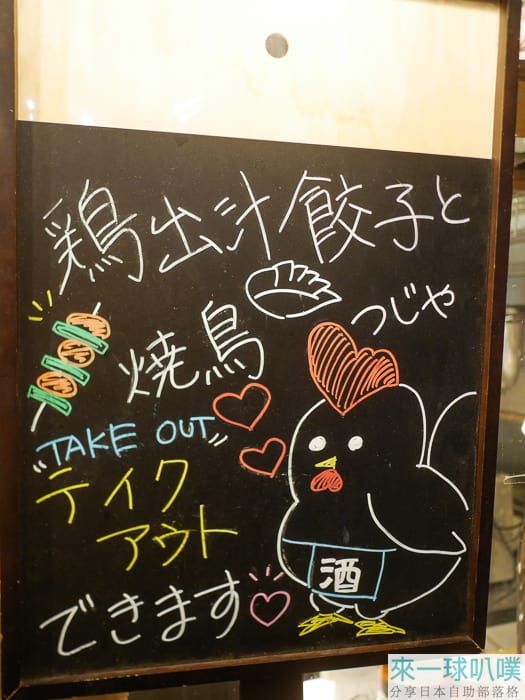 鶏出汁餃子と
焼鳥 つじや
"TAKE OUT"
テイク
アウト
できます
酒
來一球叭噗
分享日本自助部落格